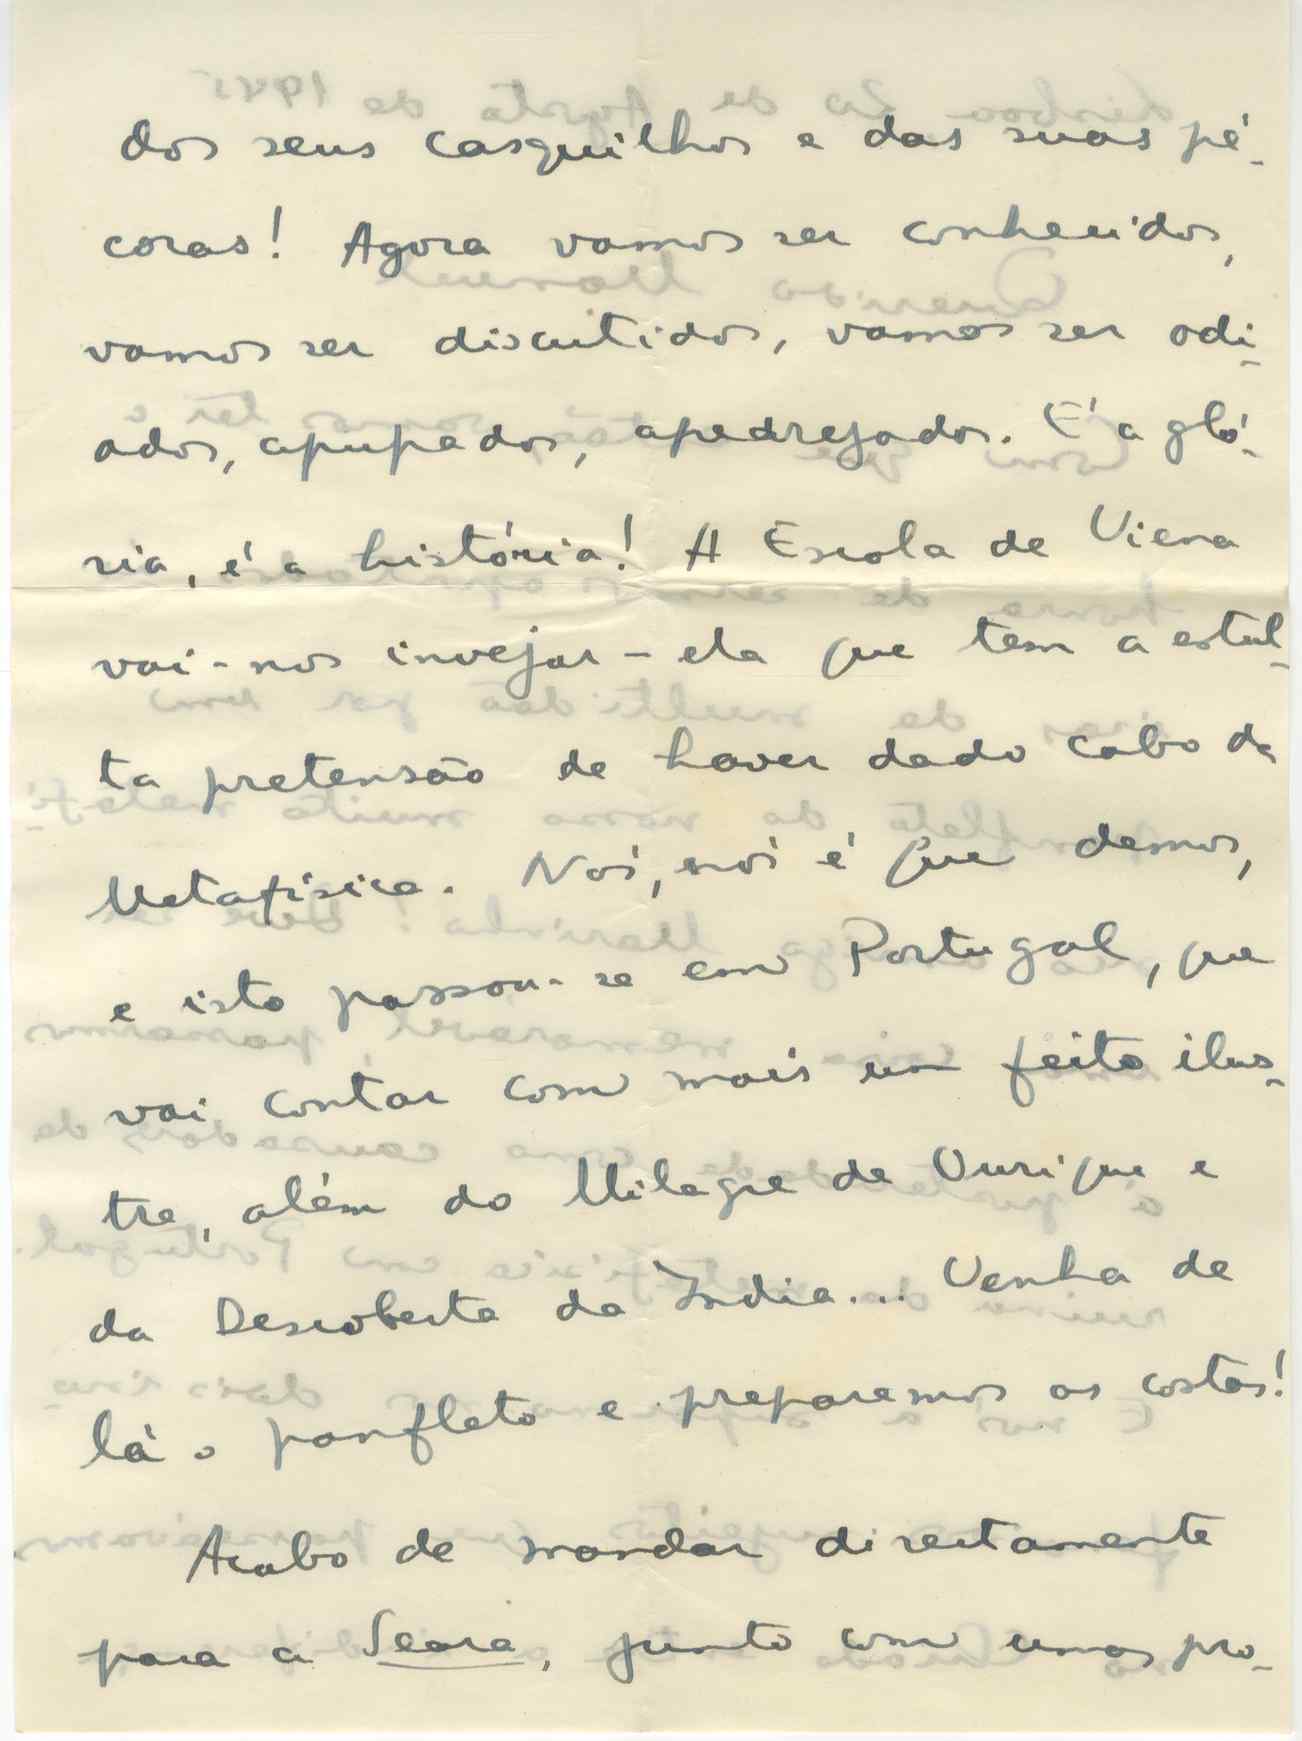 dos seus casquilhos e das suas pé-
coras! Agora vamos ser conhecidos,
vamos ser discutidos, vamos ser odi-
ados, apupados, apedrejados. É a gló-
ria, é a história! A Escola de Viena
vai-nos invejar - ela que tem a estul-
ta pretensão de haver dado cabo da
Metafísica. Nós, nós é que demos,
e isto passou-se em Portugal, que
vai contar com mais um feito ilus-
tre, além do Milagre de Ourique e
da Descoberta da Índia... Venha de
lá o panfleto e preparemos as costas!
Acabo de mandar directamente
para a Seara, junto com umas pro-